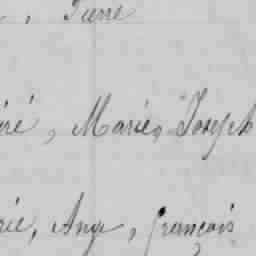 , Pierre
ré, Marie, Joseph
rie, Ange, François